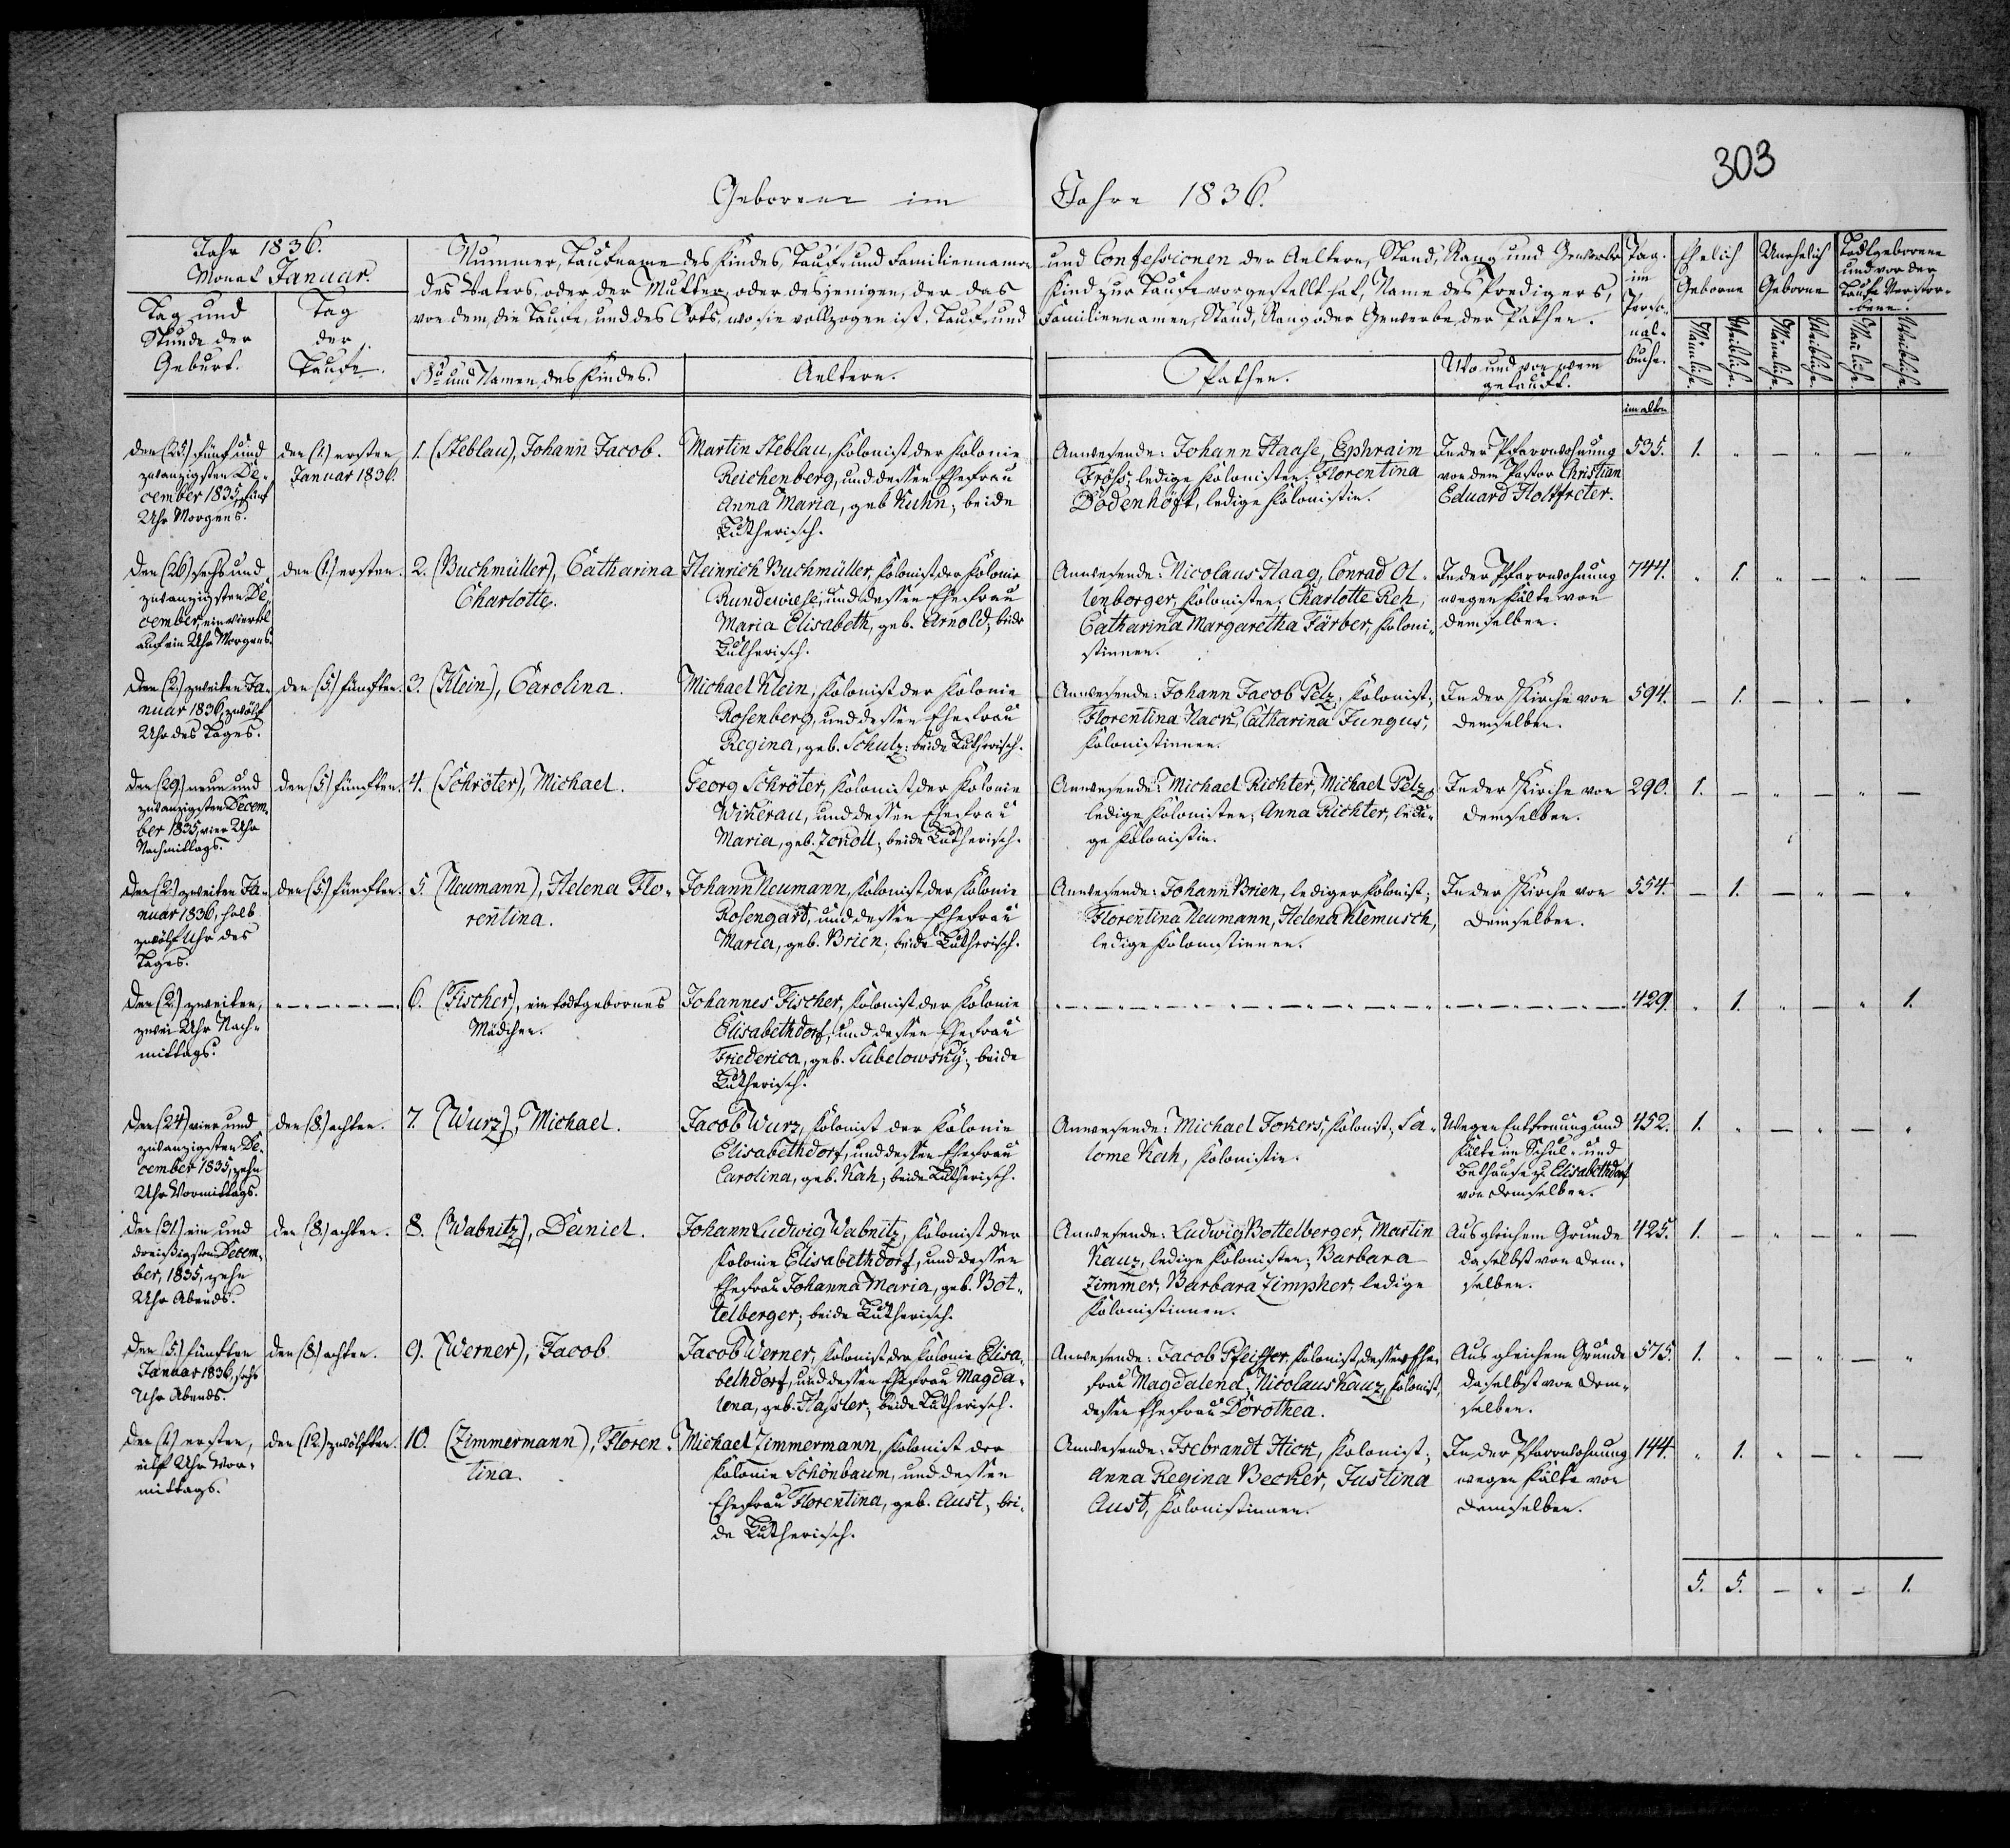 303
Geborene im Jahre 1836.
Jahr 1836.
Monat Januar.
Tag und
Stunde der
Geburt.
Tag
der
Taufe.
Nummer, Taufname des Kindes, Tauf- und Familiennamen
des Vaters, oder der Mutter, oder desjenigen, der das
von dem, die Taufe, und des Orts, wo sie vollzogen ist. Tauf- und
No und Namen des Kindes.
Aeltern.
und Confessionen der Aeltern, Stand, Rang und Gewerbe
Kind zur Taufe vorgestellt hat, Name des Predigers,
Familiennamen, Stand, Rang oder Gewerbe der Pathen.
Pathen.
Wo und von wem
getauft.
Pag.
im
Perso-
nal-
buche.
Ehelich
Geborne
Unehelich
Geborne
Todtgeborene
und vor der
Taufe Verstor-
bene.
Männliche.
Weibliche.
Männliche.
Weibliche.
Männliche.
Weibliche.
im alten
Den (25.) fünf und
zwanzigsten De-
cember 1835, fünf
Uhr Morgens.
den (1.) ersten
Januar 1836.
1. (Steblau), Johann Jacob.
Martin Steblau, Kolonist der Kolonie
Reichenberg, und dessen Ehefrau
Anna Maria, geb. Kuhn; beide
Lutherisch.
Anwesende: Johann Haase, Ephraim
Fröss, ledige Kolonisten; Florentina
Dodenhöft, ledige Kolonistin.
In der Pfarrwohnung
von dem Pastor Christian
Eduard Holtfreter.
535. 1. " — " — "
Den (26) sechs und
zwanzigsten De-
cember, ein viertel
auf ein Uhr Morgens.
den (1.) ersten.
2. (Buchmüller), Catharina
Charlotte.
Heinrich Buchmüller, Kolonist der Kolonie
Rundewiese, und dessen Ehefrau
Maria Elisabeth, geb. Arnold; beide
Lutherisch.
Anwesende: Nicolaus Haag, Conrad Ol-
lenborger, Kolonisten; Charlotte Reh,
Catharina Margaretha Färber, Koloni-
stinnen.
In der Pfarrwohnung
wegen Kälte von
demselben.
744. " 1. " — " —
Den (2.) zweiten Ja-
nuar 1836, zwölf
Uhr des Tages.
den (5.) fünften.
3. (Klein), Carolina.
Michael Klein, Kolonist der Kolonie
Rosenberg, und dessen Ehefrau
Regina, geb. Schulz; beide Lutherisch.
Anwesende: Johann Jacob Pelz, Kolonist;
Florentina Nack, Catharina Jungus,
Kolonistinnen.
In der Kirche von
demselben.
594. — 1. — " — "
Den (29.) neun und
zwanzigsten Decem-
ber 1835, vier Uhr
Nachmittags.
den (5) fünften.
4. (Schröter), Michael.
Georg Schröter, Kolonist der Kolonie
Wikerau, und dessen Ehefrau
Maria, geb. Zokoll; beide Lutherisch.
Anwesende: Michael Richter, Michael Pelz,
ledige Kolonisten; Anna Richter, ledi-
ge Kolonistin.
In der Kirche von
demselben.
290. 1. — " — " —
Den (2.) zweiten Ja-
nuar 1836, halb
zwölf Uhr des
Tages.
den (5.) fünften.
5. (Neumann), Helena Flo-
rentina.
Johann Neumann, Kolonist der Kolonie
Rosengart, und dessen Ehefrau
Maria, geb. Brien; beide Lutherisch.
Anwesende: Johann Brien, lediger Kolonist;
Florentina Neumann, Helena Klemusch,
ledige Kolonistinnen.
In der Kirche von
demselben.
554. — 1. — " — "
Den (2.) zweiten,
zwei Uhr Nach-
mittags.
6. (Fischer), ein todtgebornes
Mädchen.
Johannes Fischer, Kolonist der Kolonie
Elisabethdorf, und dessen Ehefrau
Friederica, geb. Subelowsky; beide
Lutherisch.
429. " 1. " — " 1.
Den (24) vier und
zwanzigsten De-
cember 1835, zehn
Uhr Vormittags.
den (8.) achten.
7. (Wurz), Michael.
Jacob Wurz, Kolonist der Kolonie
Elisabethdorf, und dessen Ehefrau
Carolina, geb. Kah; beide Lutherisch.
Anwesende: Michael Fokers, Kolonist; Sa-
lome Kah, Kolonistin.
Wegen Entfernung und
Kälte im Schul- und
Bethause zu Elisabethdorf
von demselben.
452. 1. " — " — "
Den (31) ein und
dreißigsten Decem-
ber, 1835, zehn
Uhr Abends.
den (8.) achten.
8. (Wabnitz), Daniel.
Johann Ludwig Wabnitz, Kolonist der
Kolonie Elisabethdorf, und dessen
Ehefrau Johanna Maria, geb. Bot-
telberger; beide Lutherisch.
Anwesende: Ludwig Bottelberger, Martin
Kauz, ledige Kolonisten; Barbara
Zimmer, Barbara Zimpher, ledige
Kolonistinnen.
Aus gleichem Grunde
daselbst von dem-
selben.
425. 1. — " — " —
Den (5.) fünften
Januar 1836, sechs
Uhr Abends.
den (8.) achten.
9. (Werner), Jacob.
Jacob Werner, Kolonist der Kolonie Elisa-
bethdorf, und dessen Ehefrau Magda-
lena, geb. Hassler; beide Lutherisch.
Anwesende: Jacob Pfeiffer, Kolonist, dessen Ehe-
frau Magdalena; Nicolaus Kauz, Kolonist,
dessen Ehefrau Dorothea.
Aus gleichem Grunde
daselbst von dem-
selben.
575. 1. " — " — "
Den (1.) ersten,
eilf Uhr Vor-
mittags.
den (12.) zwölften.
10. (Zimmermann), Floren-
tina.
Michael Zimmermann, Kolonist der
Kolonie Schönbaum, und dessen
Ehefrau Florentina, geb. Aust; bei-
de Lutherisch.
Anwesende: Isebrandt Hick, Kolonist;
Anna Regina Becker, Justina
Aust, Kolonistinnen.
In der Pfarrwohnung
wegen Kälte von
demselben.
144. " 1. " — " —
5. 5. — " — 1.